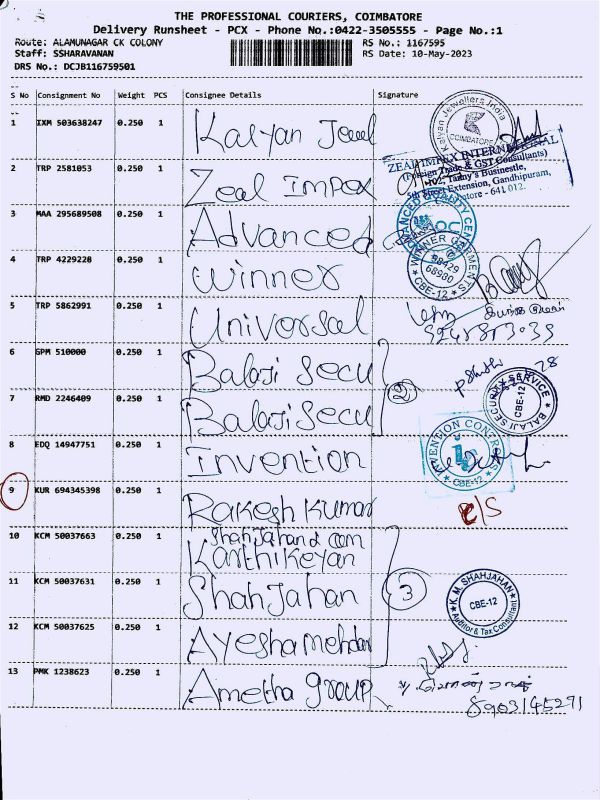 THE PROFESSIONAL COURIERS, COIMBATORE
Delivery Runsheet - PCX - Phone No.:0422-3505555 - Page No.:1
Route: ALAMUNAGAR CK COLONY RS No.: 1167595
Staff: SSHARAVANAN RS Date: 10-May-2023
DRS No.: DCJB116759501
S No Consignment No Weight PCS Consignee Details Signature
1 IXM 503638247 0.250 1 Kalyan Jewel
Kalyan Jewellers India
COIMBATORE
2 TRP 2581053 0.250 1 Zeal Impex
ZEAL IMPEX INTERNATIONAL
(Foreign Trade & GST Consultants)
Extension, Gandhipuram,
641 012.
3 MAA 295689508 0.250 1 Advanced
4 TRP 4229228 0.250 1 Winner
WINNER
98429
68980
CBE-12
5 TRP 5862991 0.250 1 Universal
6 GPM 510000 0.250 1 Balaji Secu
7 RMD 2246409 0.250 1 Balaji Secu
2
28
BALAJI SECURITY SERVICE
CBE-12
8 EDQ 14947751 0.250 1 Invention
INVENTION CONTROLS
CBE-12
9 KUR 694345398 0.250 1 Rakesh Kumar
10 KCM 50037663 0.250 1 Shahjahan & com
Karthikeyan
11 KCM 50037631 0.250 1 Shahjahan
3
K. M. SHAHJAHAN
CBE-12
Auditor & Tax Consultant
12 KCM 50037625 0.250 1 Ayesha
13 PMK 1238623 0.250 1 Group
8903145271